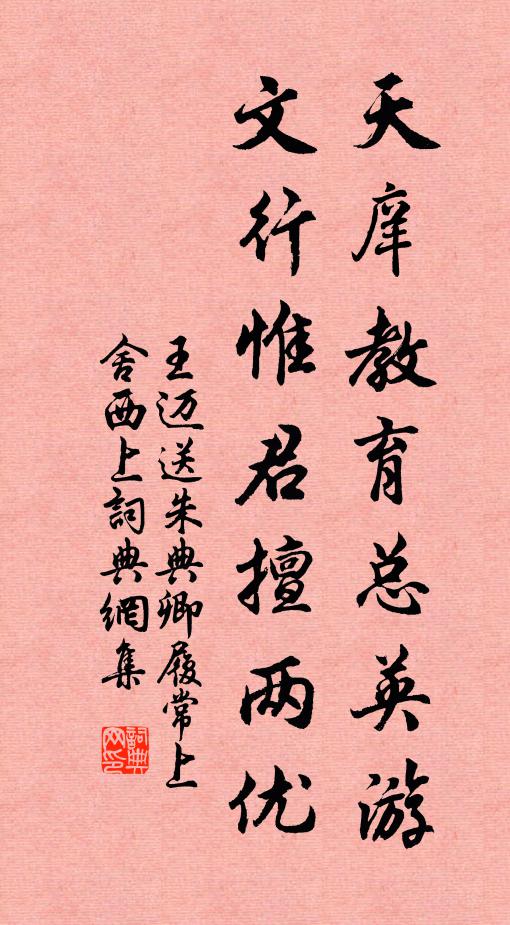 天庠教育总英游
文行惟君擅两优
王迈送朱典卿履常上
舍西上詞典網集
詞典
网印